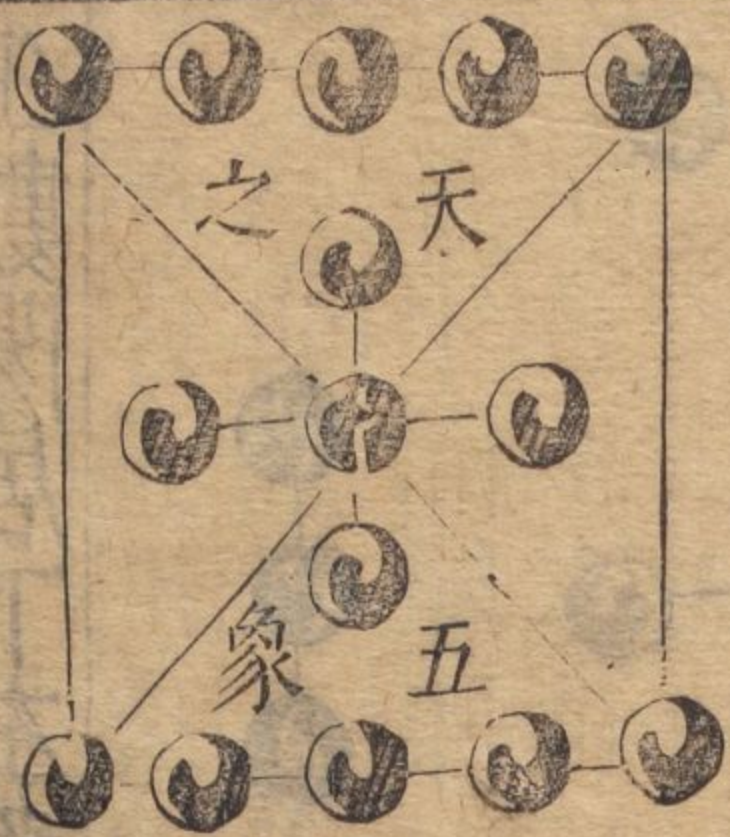 天五
之象